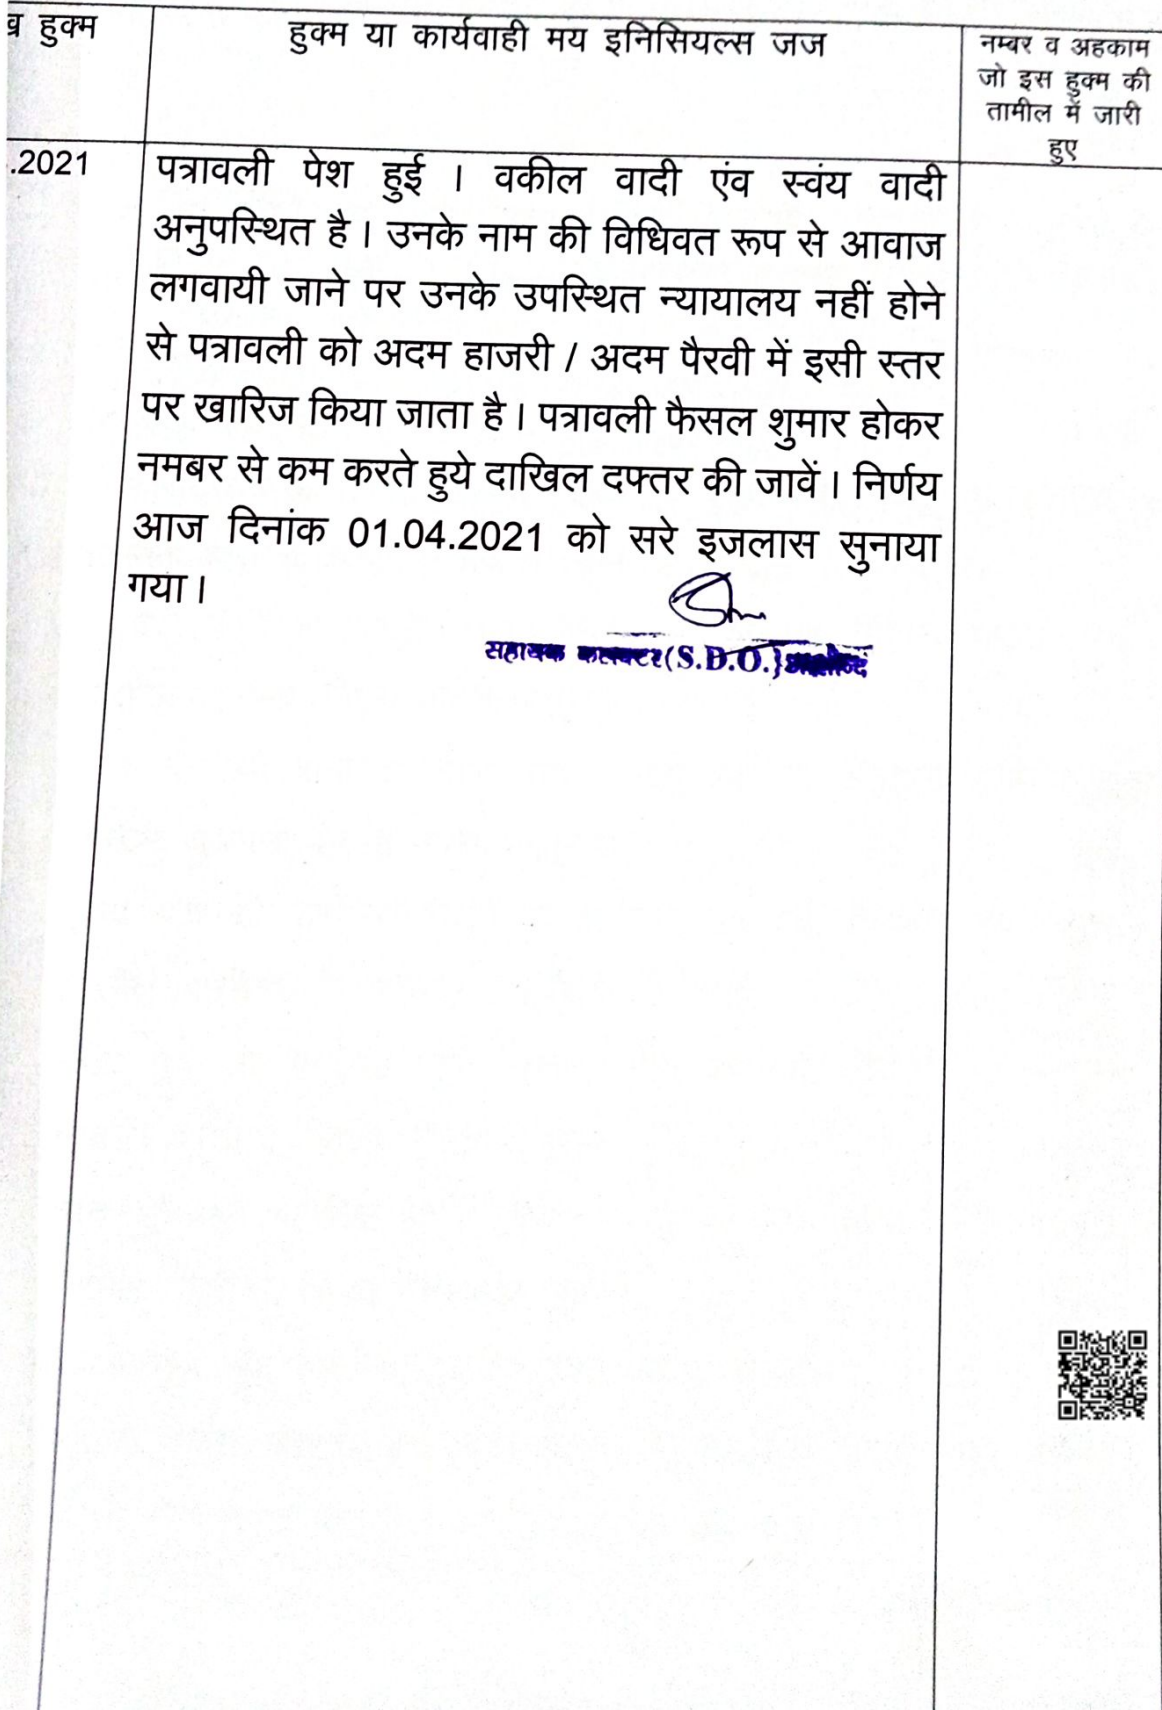 व हुक्म
हुक्म या कार्यवाही मय इनिसियल्स जज
नम्बर व अहकाम
जो इस हुक्म की
तामील में जारी
हुए
.2021
पत्रावली पेश हुई । वकील वादी एंव स्वंय वादी
अनुपस्थित है । उनके नाम की विधिवत रूप से आवाज
लगवायी जाने पर उनके उपस्थित न्यायालय नहीं होने
से पत्रावली को अदम हाजरी / अदम पैरवी में इसी स्तर
पर खारिज किया जाता है । पत्रावली फैसल शुमार होकर
नमबर से कम करते हुये दाखिल दफ्तर की जावें । निर्णय
आज दिनांक 01.04.2021 को सरे इजलास सुनाया
गया ।
सहायक कलक्टर (S.D.O.)